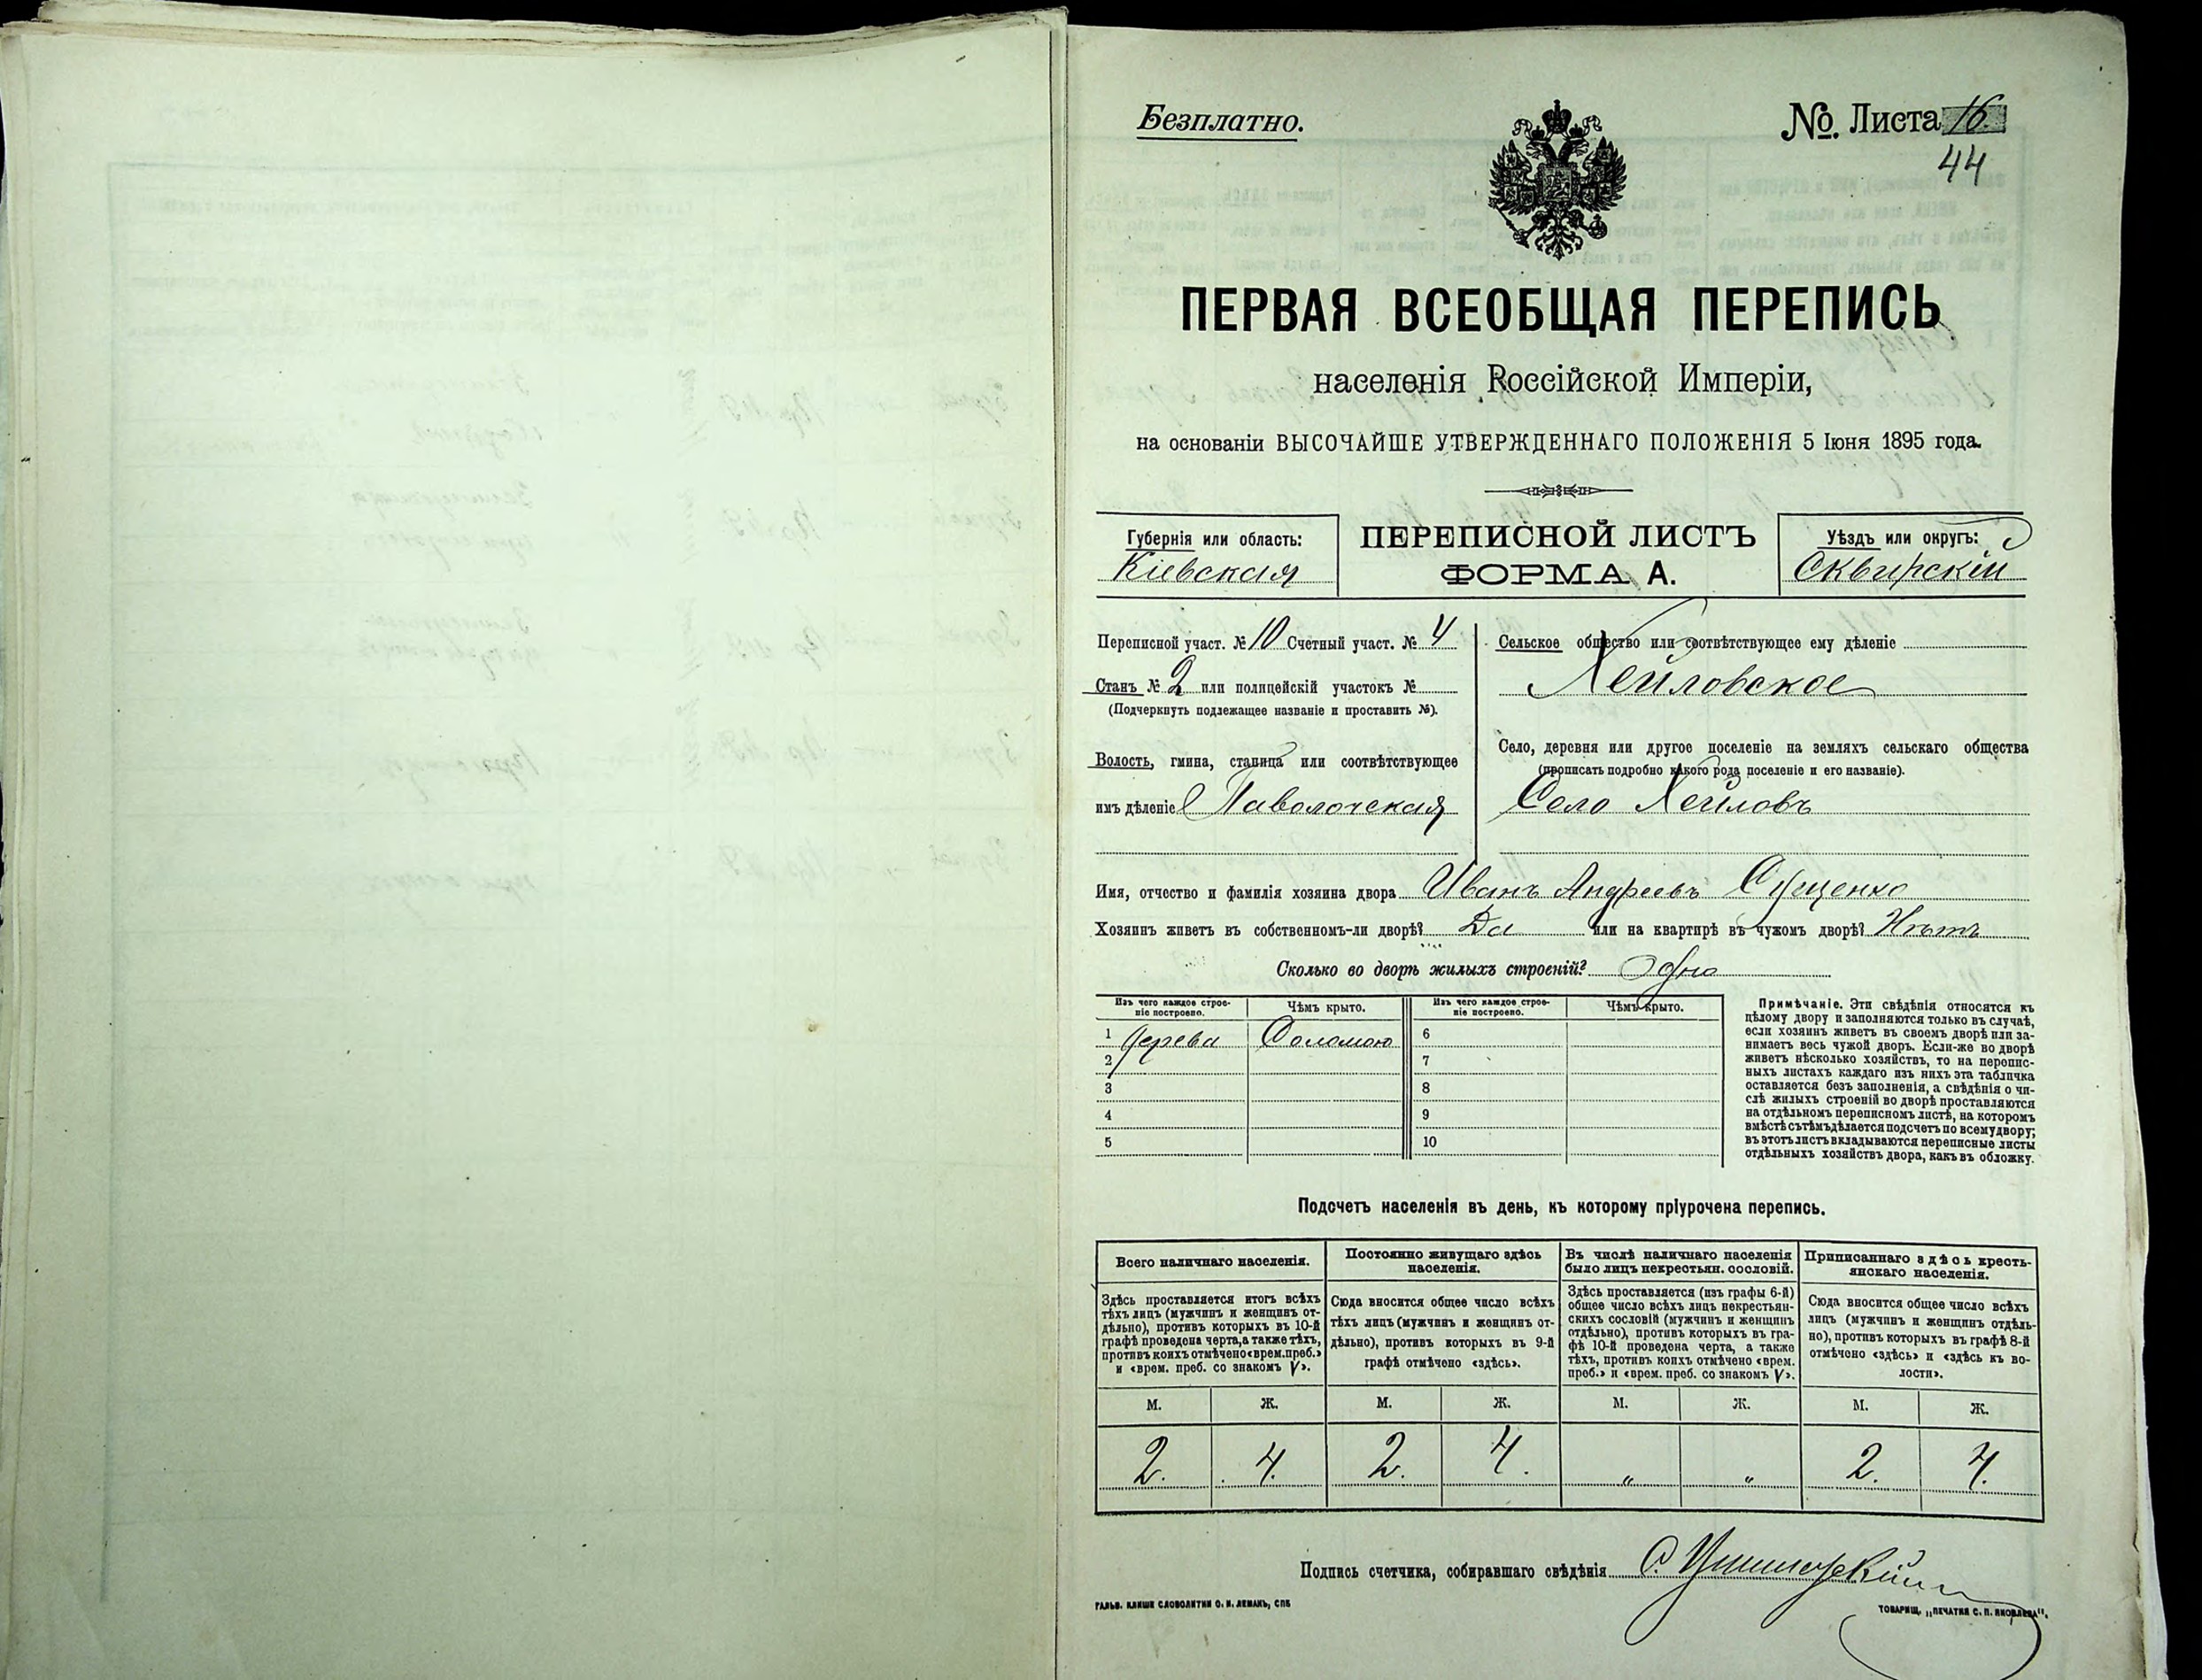 Безплатно.
№. Листа 16
44
ПЕРВАЯ ВСЕОБЩАЯ ПЕРЕПИСЬ
населенія Россійской Имперіи,
на основаніи ВЫСОЧАЙШЕ УТВЕРЖДЕННАГО ПОЛОЖЕНІЯ 5 Іюня 1895 года.
Губернія или область:
Кіевская
ПЕРЕПИСНОЙ ЛИСТЪ
ФОРМА А.
Уѣздъ или округъ:
Сквирскій
Переписной участ. № 10 Счетный участ. № 4
Станъ № 2 или полицейскій участокъ №
(Подчеркнуть подлежащее названіе и проставить №).
Волость, гмина, станица или соотвѣтствующее
имъ дѣленіе Паволочская
Сельское общество или соотвѣтствующее ему дѣленіе
Хейловское
Село, деревня или другое поселеніе на земляхъ сельскаго общества
(прописать подробно какого рода поселеніе и его названіе).
Село Хейловъ
Имя, отчество и фамилія хозяина двора Иванъ Андреевъ
Хозяинъ живетъ въ собственномъ-ли дворѣ? Да или на квартирѣ въ чужомъ дворѣ? Нѣтъ
Сколько во дворѣ жилыхъ строеній? Одно
Изъ чего каждое строе-
ніе построено.
Чѣмъ крыто.
Изъ чего каждое строе-
ніе построено.
Чѣмъ крыто.
1 Дерева Соломою 6
2 7
3 8
4 9
5 10
Примѣчаніе. Эти свѣдѣнія относятся къ
цѣлому двору и заполняются только въ случаѣ,
если хозяинъ живетъ въ своемъ дворѣ или за-
нимаетъ весь чужой дворъ. Если-же во дворѣ
живетъ нѣсколько хозяйствъ, то на перепис-
ныхъ листахъ каждаго изъ нихъ эта табличка
оставляется безъ заполненія, а свѣдѣнія о чи-
слѣ жилыхъ строеній во дворѣ проставляются
на отдѣльномъ переписномъ листѣ, на которомъ
вмѣстѣ съ тѣмъ дѣлается подсчетъ по всему двору;
въ этотъ листъ вкладываются переписные листы
отдѣльныхъ хозяйствъ двора, какъ въ обложку.
Подсчетъ населенія въ день, къ которому пріурочена перепись.
Всего наличнаго населенія.
Здѣсь проставляется итогъ всѣхъ
тѣхъ лицъ (мужчинъ и женщинъ от-
дѣльно), противъ которыхъ въ 10-й
графѣ проведена черта, а также тѣхъ,
противъ коихъ отмѣчено «врем. преб.»
и «врем. преб. со знакомъ V».
Постоянно живущаго здѣсь
населенія.
Сюда вносится общее число всѣхъ
тѣхъ лицъ (мужчинъ и женщинъ от-
дѣльно), противъ которыхъ въ 9-й
графѣ отмѣчено «здѣсь».
Въ числѣ наличнаго населенія
было лицъ некрестьян. сословій.
Здѣсь проставляется (изъ графы 6-й)
общее число всѣхъ лицъ некрестьян-
скихъ сословій (мужчинъ и женщинъ
отдѣльно), противъ которыхъ въ гра-
фѣ 10-й проведена черта, а также
тѣхъ, противъ коихъ отмѣчено «врем.
преб.» и «врем. преб. со знакомъ V».
Приписаннаго здѣсь кресть-
янскаго населенія.
Сюда вносится общее число всѣхъ
лицъ (мужчинъ и женщинъ отдѣль-
но), противъ которыхъ въ графѣ 8-й
отмѣчено «здѣсь» и «здѣсь къ во-
лости».
М. Ж. М. Ж. М. Ж. М. Ж.
2. 4. 2. 4. " " 2. 4.
Подпись счетчика, собиравшаго свѣдѣнія С.
ГАЛЬВ. КЛИШЕ СЛОВОЛИТНИ О. И. ЛЕМАНЪ, СПБ
ТОВАРИЩ. „ПЕЧАТНЯ С. П. ЯКОВЛЕВА".